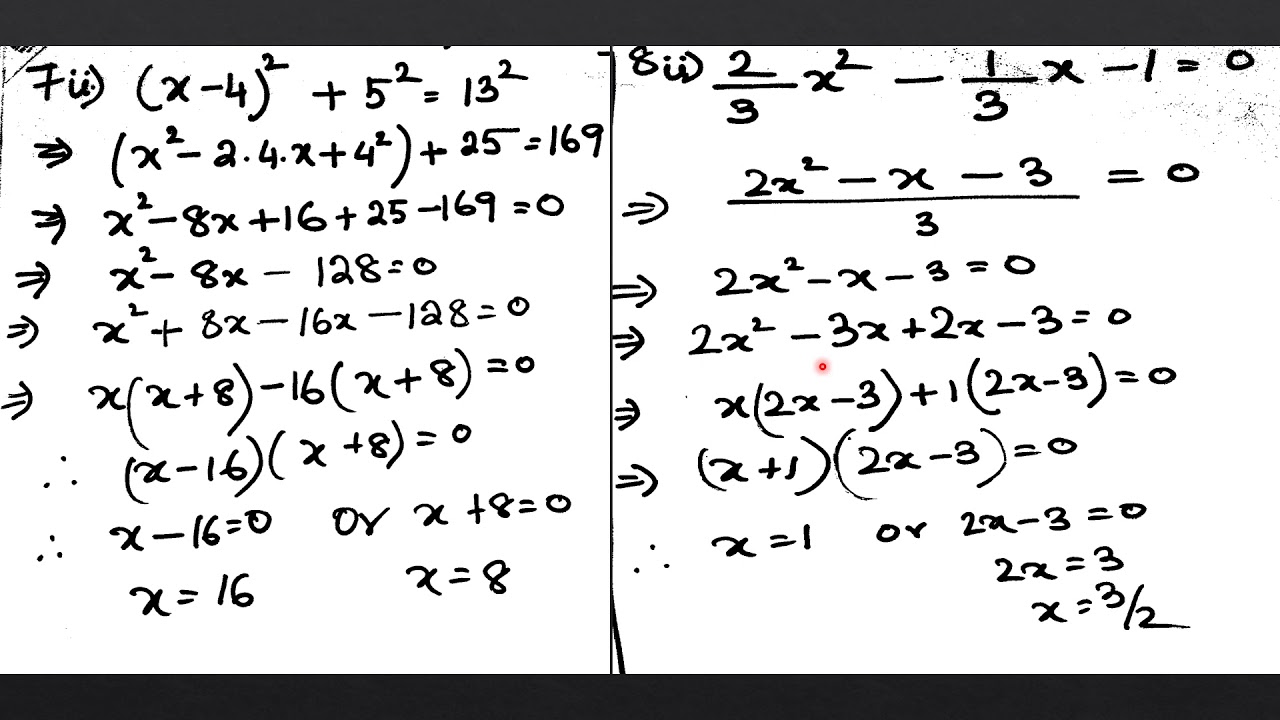 7 ii) (x-4)² + 5² = 13²
⇒ (x² - 2·4·x + 4²) + 25 = 169
⇒ x² - 8x + 16 + 25 - 169 = 0
⇒ x² - 8x - 128 = 0
⇒ x² + 8x - 16x - 128 = 0
⇒ x(x+8) - 16(x+8) = 0
∴ (x-16)(x+8) = 0
∴ x-16=0 or x+8=0
x = 16 x = 8
8 ii) 2/3 x² - 1/3 x - 1 = 0
⇒ (2x² - x - 3)/3 = 0
⇒ 2x² - x - 3 = 0
⇒ 2x² - 3x + 2x - 3 = 0
⇒ x(2x-3) + 1(2x-3) = 0
⇒ (x+1)(2x-3) = 0
∴ x = 1 or 2x-3 = 0
2x = 3
x = 3/2